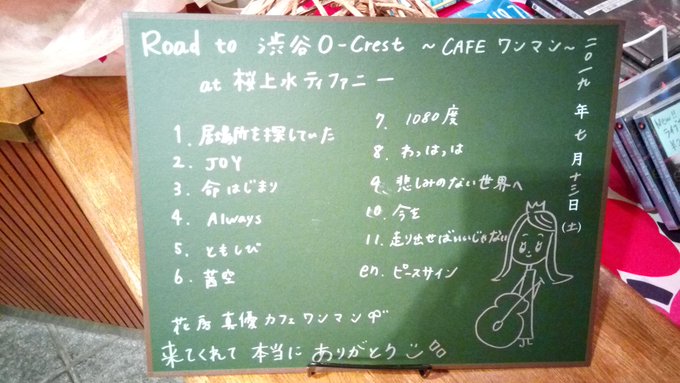 Road to 渋谷O-Crest ～CAFE ワンマン～
at 桜上水ティファニー
二〇一九年七月十三日(土)
1. 居場所を探していた
2. JOY
3. 命はじまり
4. Always
5. ともしび
6. 苔空
7. 1080度
8. わっはっは
9. 悲しみのない世界へ
10. 今を
11. 走り出せばいいじゃない
en. ピースサイン
花房真優カフェワンマン
来てくれて本当にありがとう